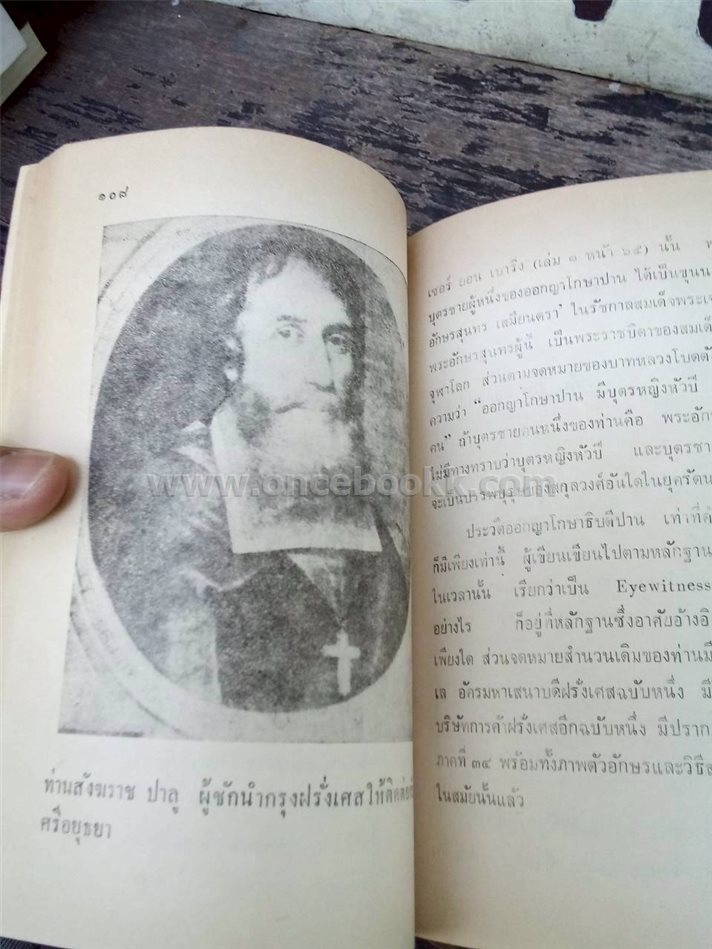 ๑๐๘
www.oncebookk.com
ท่านสังฆราช ปาลู ผู้ชักนำกรุงฝรั่งเศสให้ติดต่อ
ศรีอยุธยา
เซอร์ ยอน เบาริง (เล่ม ๑ หน้า ๖๕) นั้น
บุตรชายผู้หนึ่งของออกญาโกษาปาน ได้เป็นขุนน
อักษรสุนทร เสมียนตรา' ในรัชกาลสมเด็จพระเ
พระอักษรสุนทรผู้นี้ เป็นพระราชบิดาของสมเด็
จุฬาโลก ส่วนตามจดหมายของบาทหลวงโบด
ความว่า “ออกญาโกษาปาน มีบุตรหญิงหัวปี
คน” ถ้าบุตรชายคนหนึ่งของท่านคือ พระอัก
ไม่มีทางทราบว่าบุตรหญิงหัวปี และบุตรชา
จะเป็นบรรพบุรุษของสกุลวงศ์อันใดในยุครัตน
ประวัติออกญาโกษาธิบดีปาน เท่าที่
ก็มีเพียงเท่านี้ ผู้เขียนเขียนไปตามหลักฐาน
ในเวลานั้น เรียกว่าเป็น Eyewitness
อย่างไร ก็อยู่ที่หลักฐานซึ่งอาศัยอ้างอิ
เพียงใด ส่วนจดหมายสำนวนเดิมของท่านมี
เล อัครมหาเสนาบดีฝรั่งเศสฉบับหนึ่ง มี
บริษัทการค้าฝรั่งเศสอีกฉบับหนึ่ง มีปราก
ภาคที่ ๓๔ พร้อมทั้งภาพตัวอักษรและวิธี
ในสมัยนั้นแล้ว